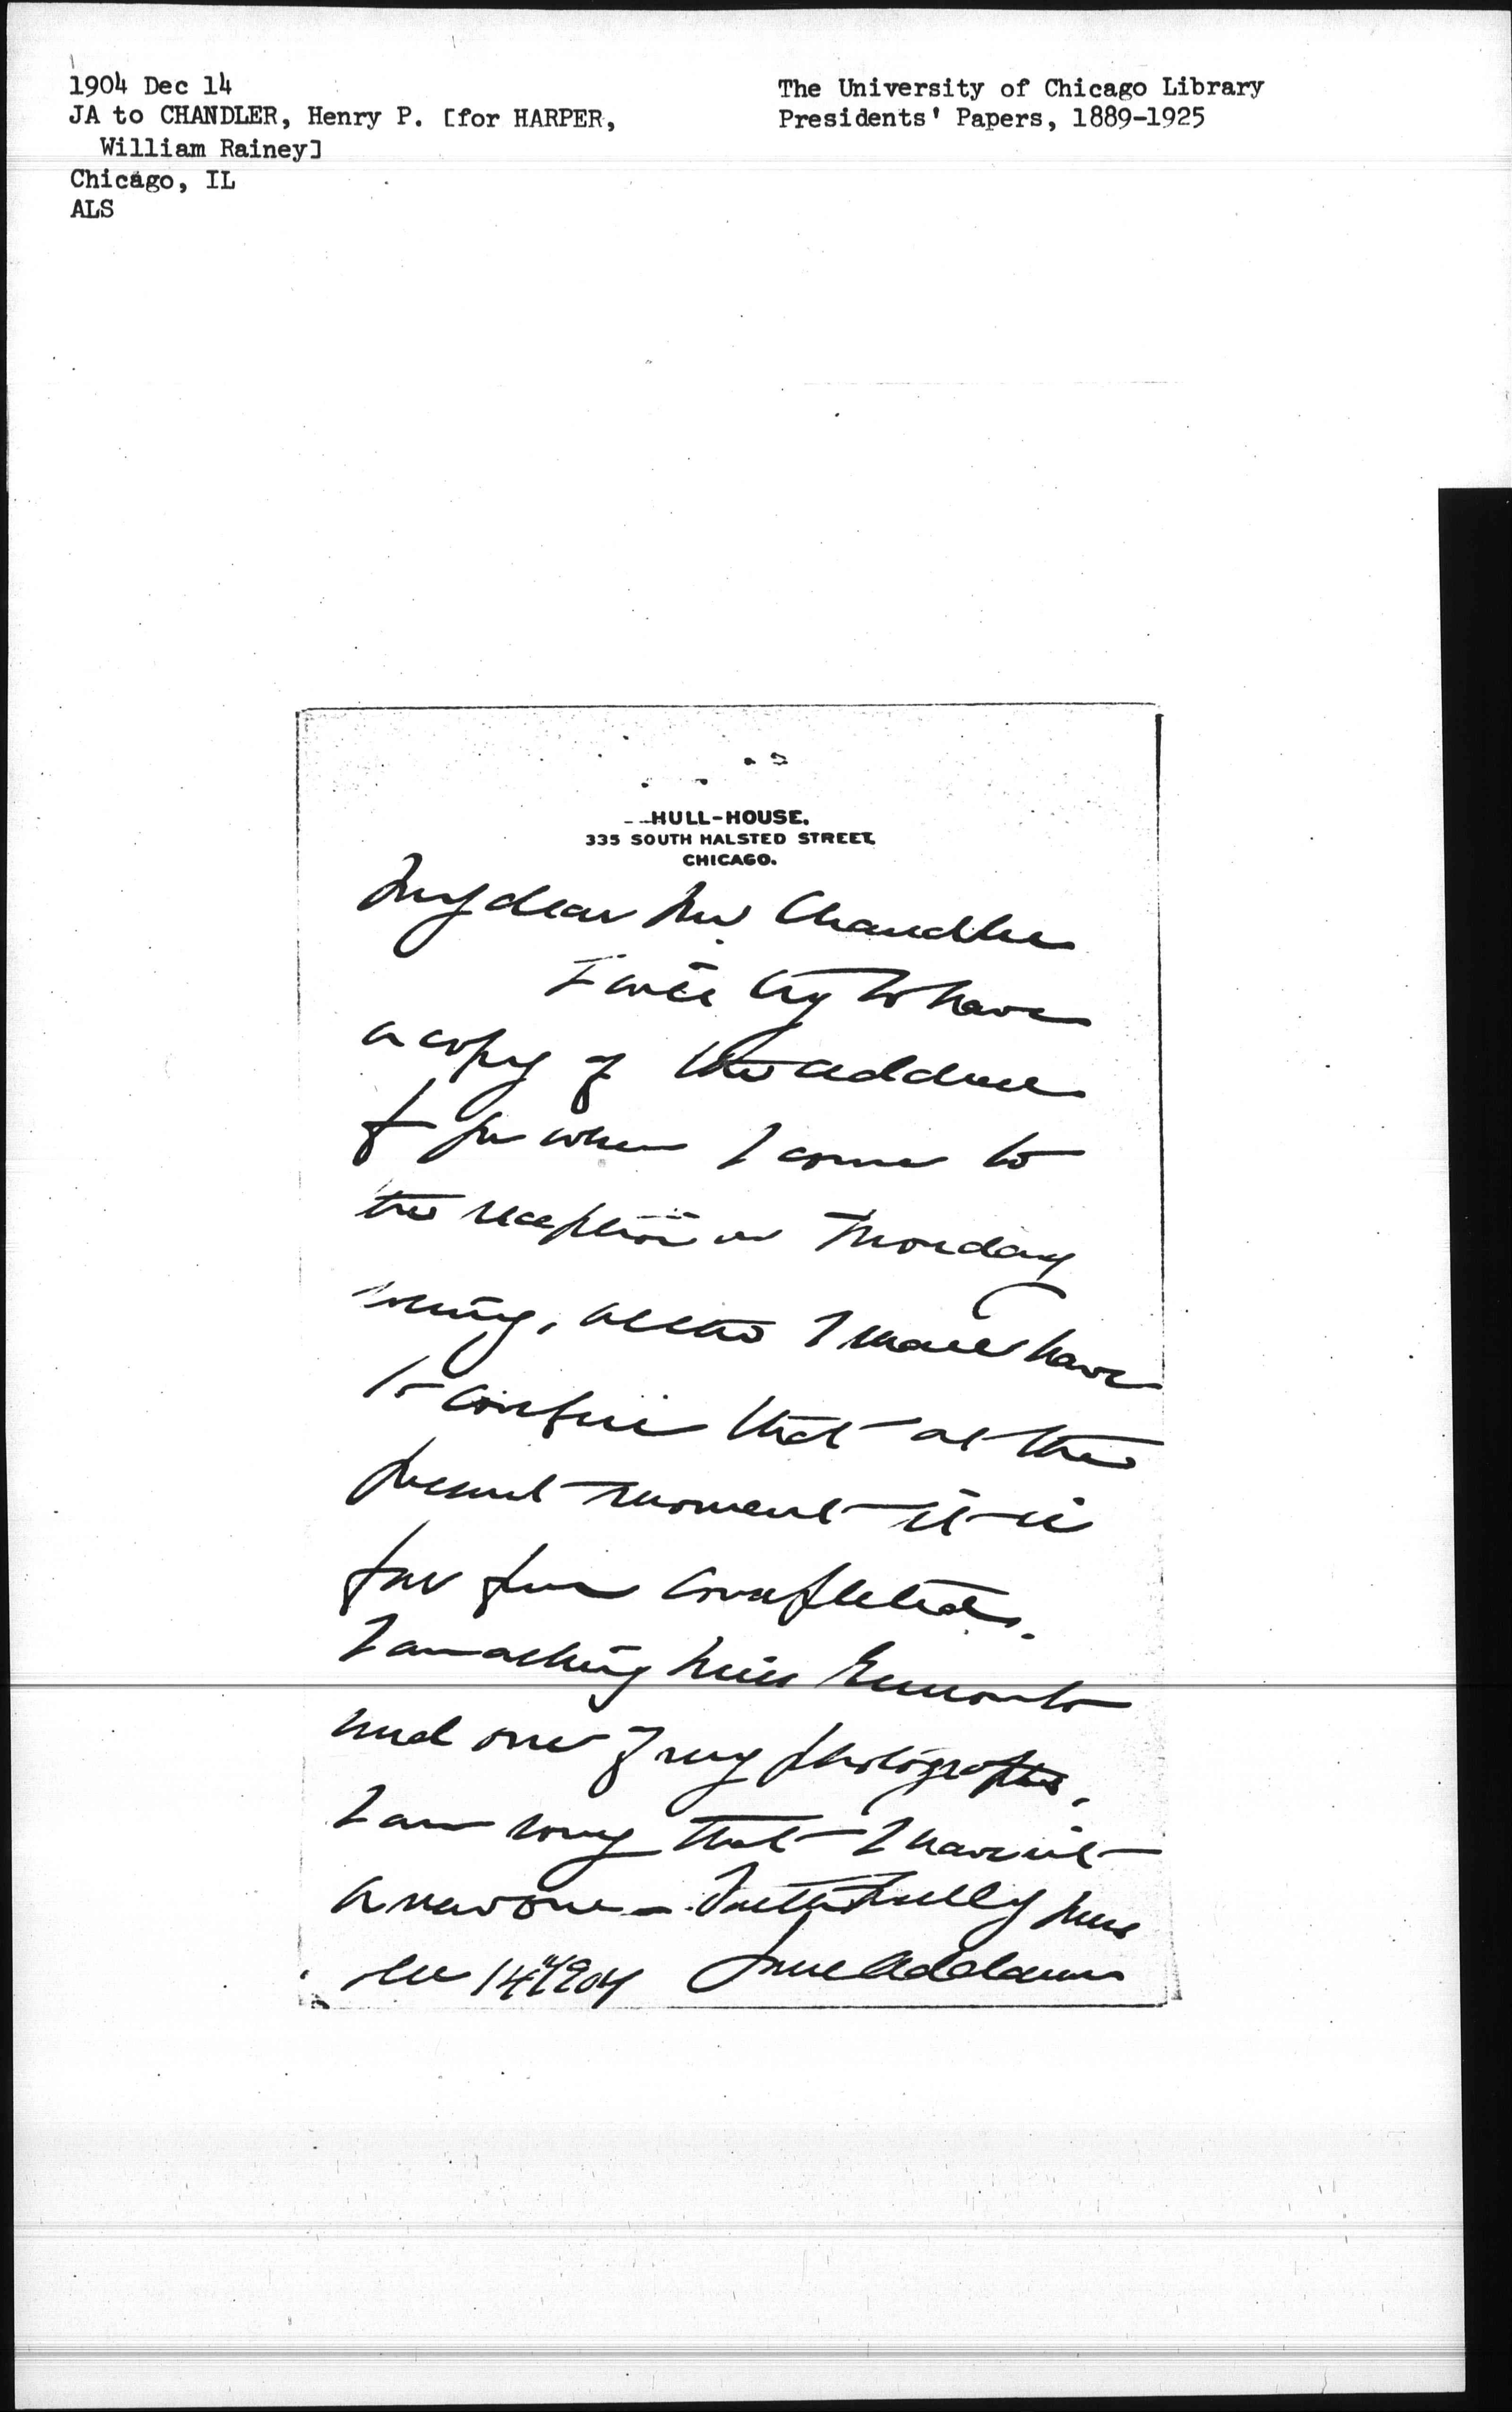 1904 Dec 14
JA to CHANDLER, Henry P. [for HARPER,
William Rainey]
Chicago, IL
ALS
The University of Chicago Library
Presidents' Papers, 1889-1925
HULL-HOUSE.
335 SOUTH HALSTED STREET,
CHICAGO.
My dear Mr Chandler
I will try to have
a copy of the address
when I come to
the reception on Monday
evening, altho I shall have
to confess that at the
present moment it is
far from completed.
I am asking Miss to
send one of my photographs.
I am sorry that I haven't
a new one - Faithfully yours
Dec 14" 1904 Jane Addams